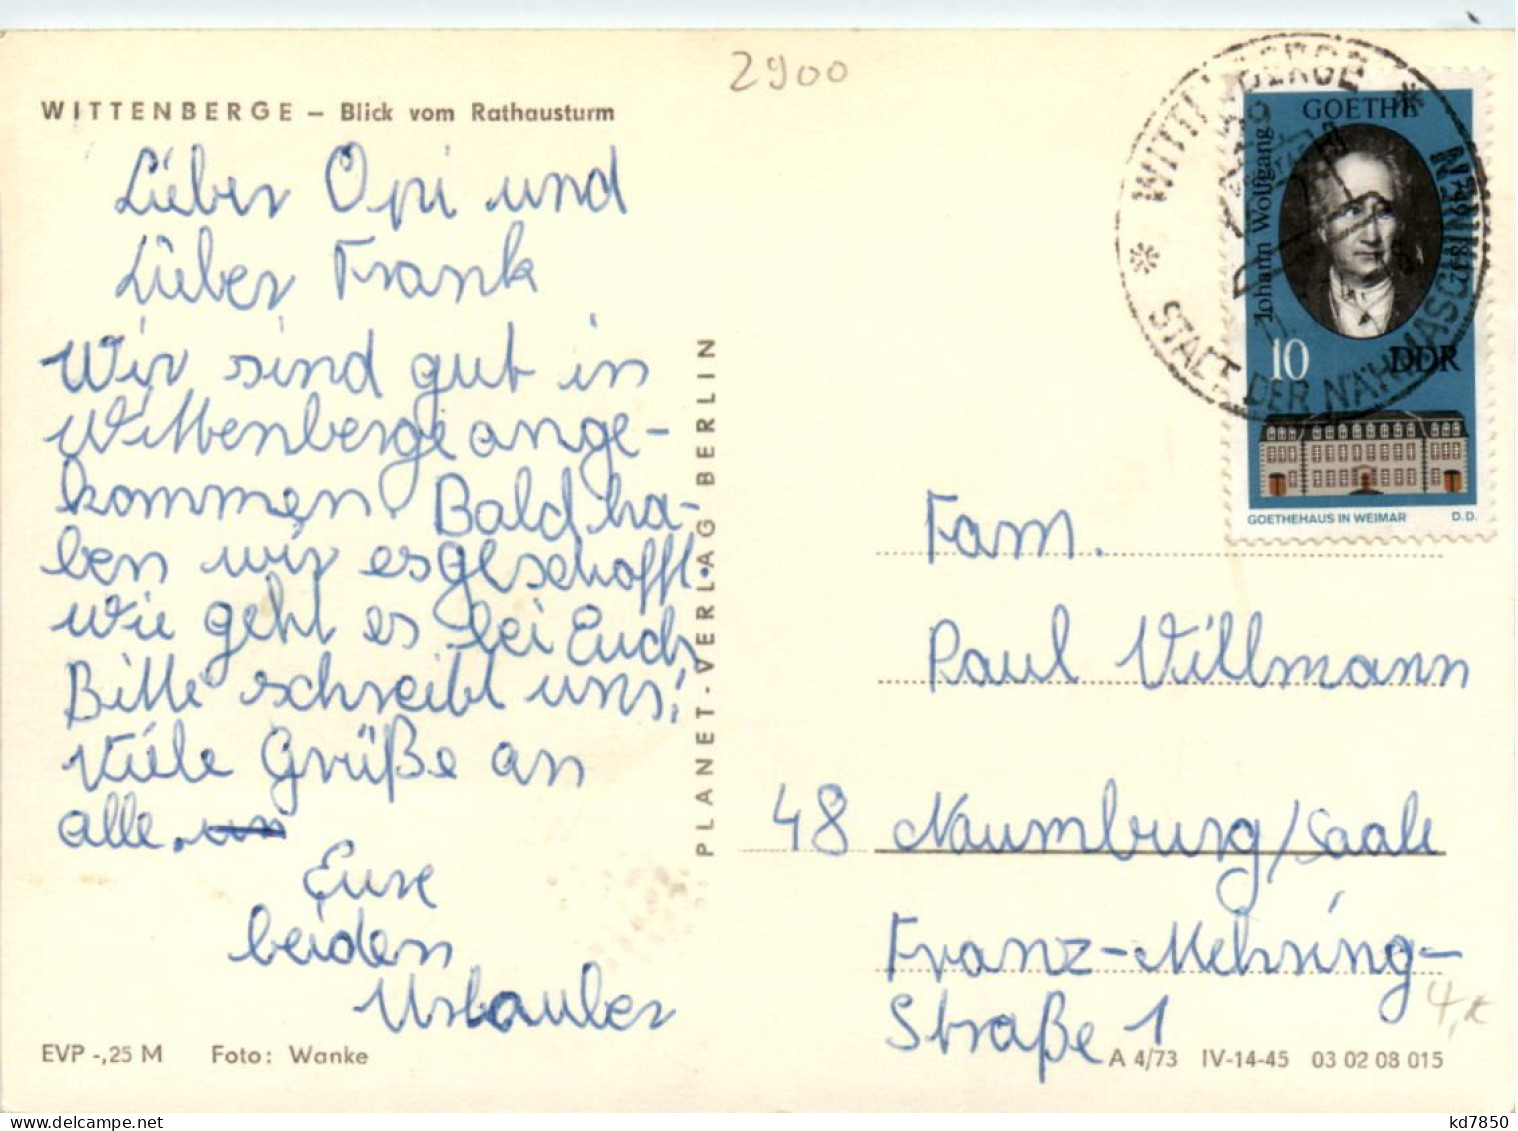 2900
WITTENBERGE – Blick vom Rathausturm
Lieber Opi und
Lieber Frank
Wir sind gut in
Wittenberge ange-
kommen. Bald ha-
ben wir es geschafft.
Wie geht es bei Euch
Bitte schreibt uns!
Viele Grüße an
alle.
Eure
beiden
Urlauber
EVP -,25 M Foto: Wanke
PLANET-VERLAG BERLIN
WITTENBERGE
STADT DER NÄHMASCHINEN
Johann Wolfgang
GOETHE
10 DDR
GOETHEHAUS IN WEIMAR D.D.
Fam.
Paul Villmann
48 Naumburg/Saale
Franz-Mehring-
Straße 1
A 4/73 IV-14-45 03 02 08 015
kd7850